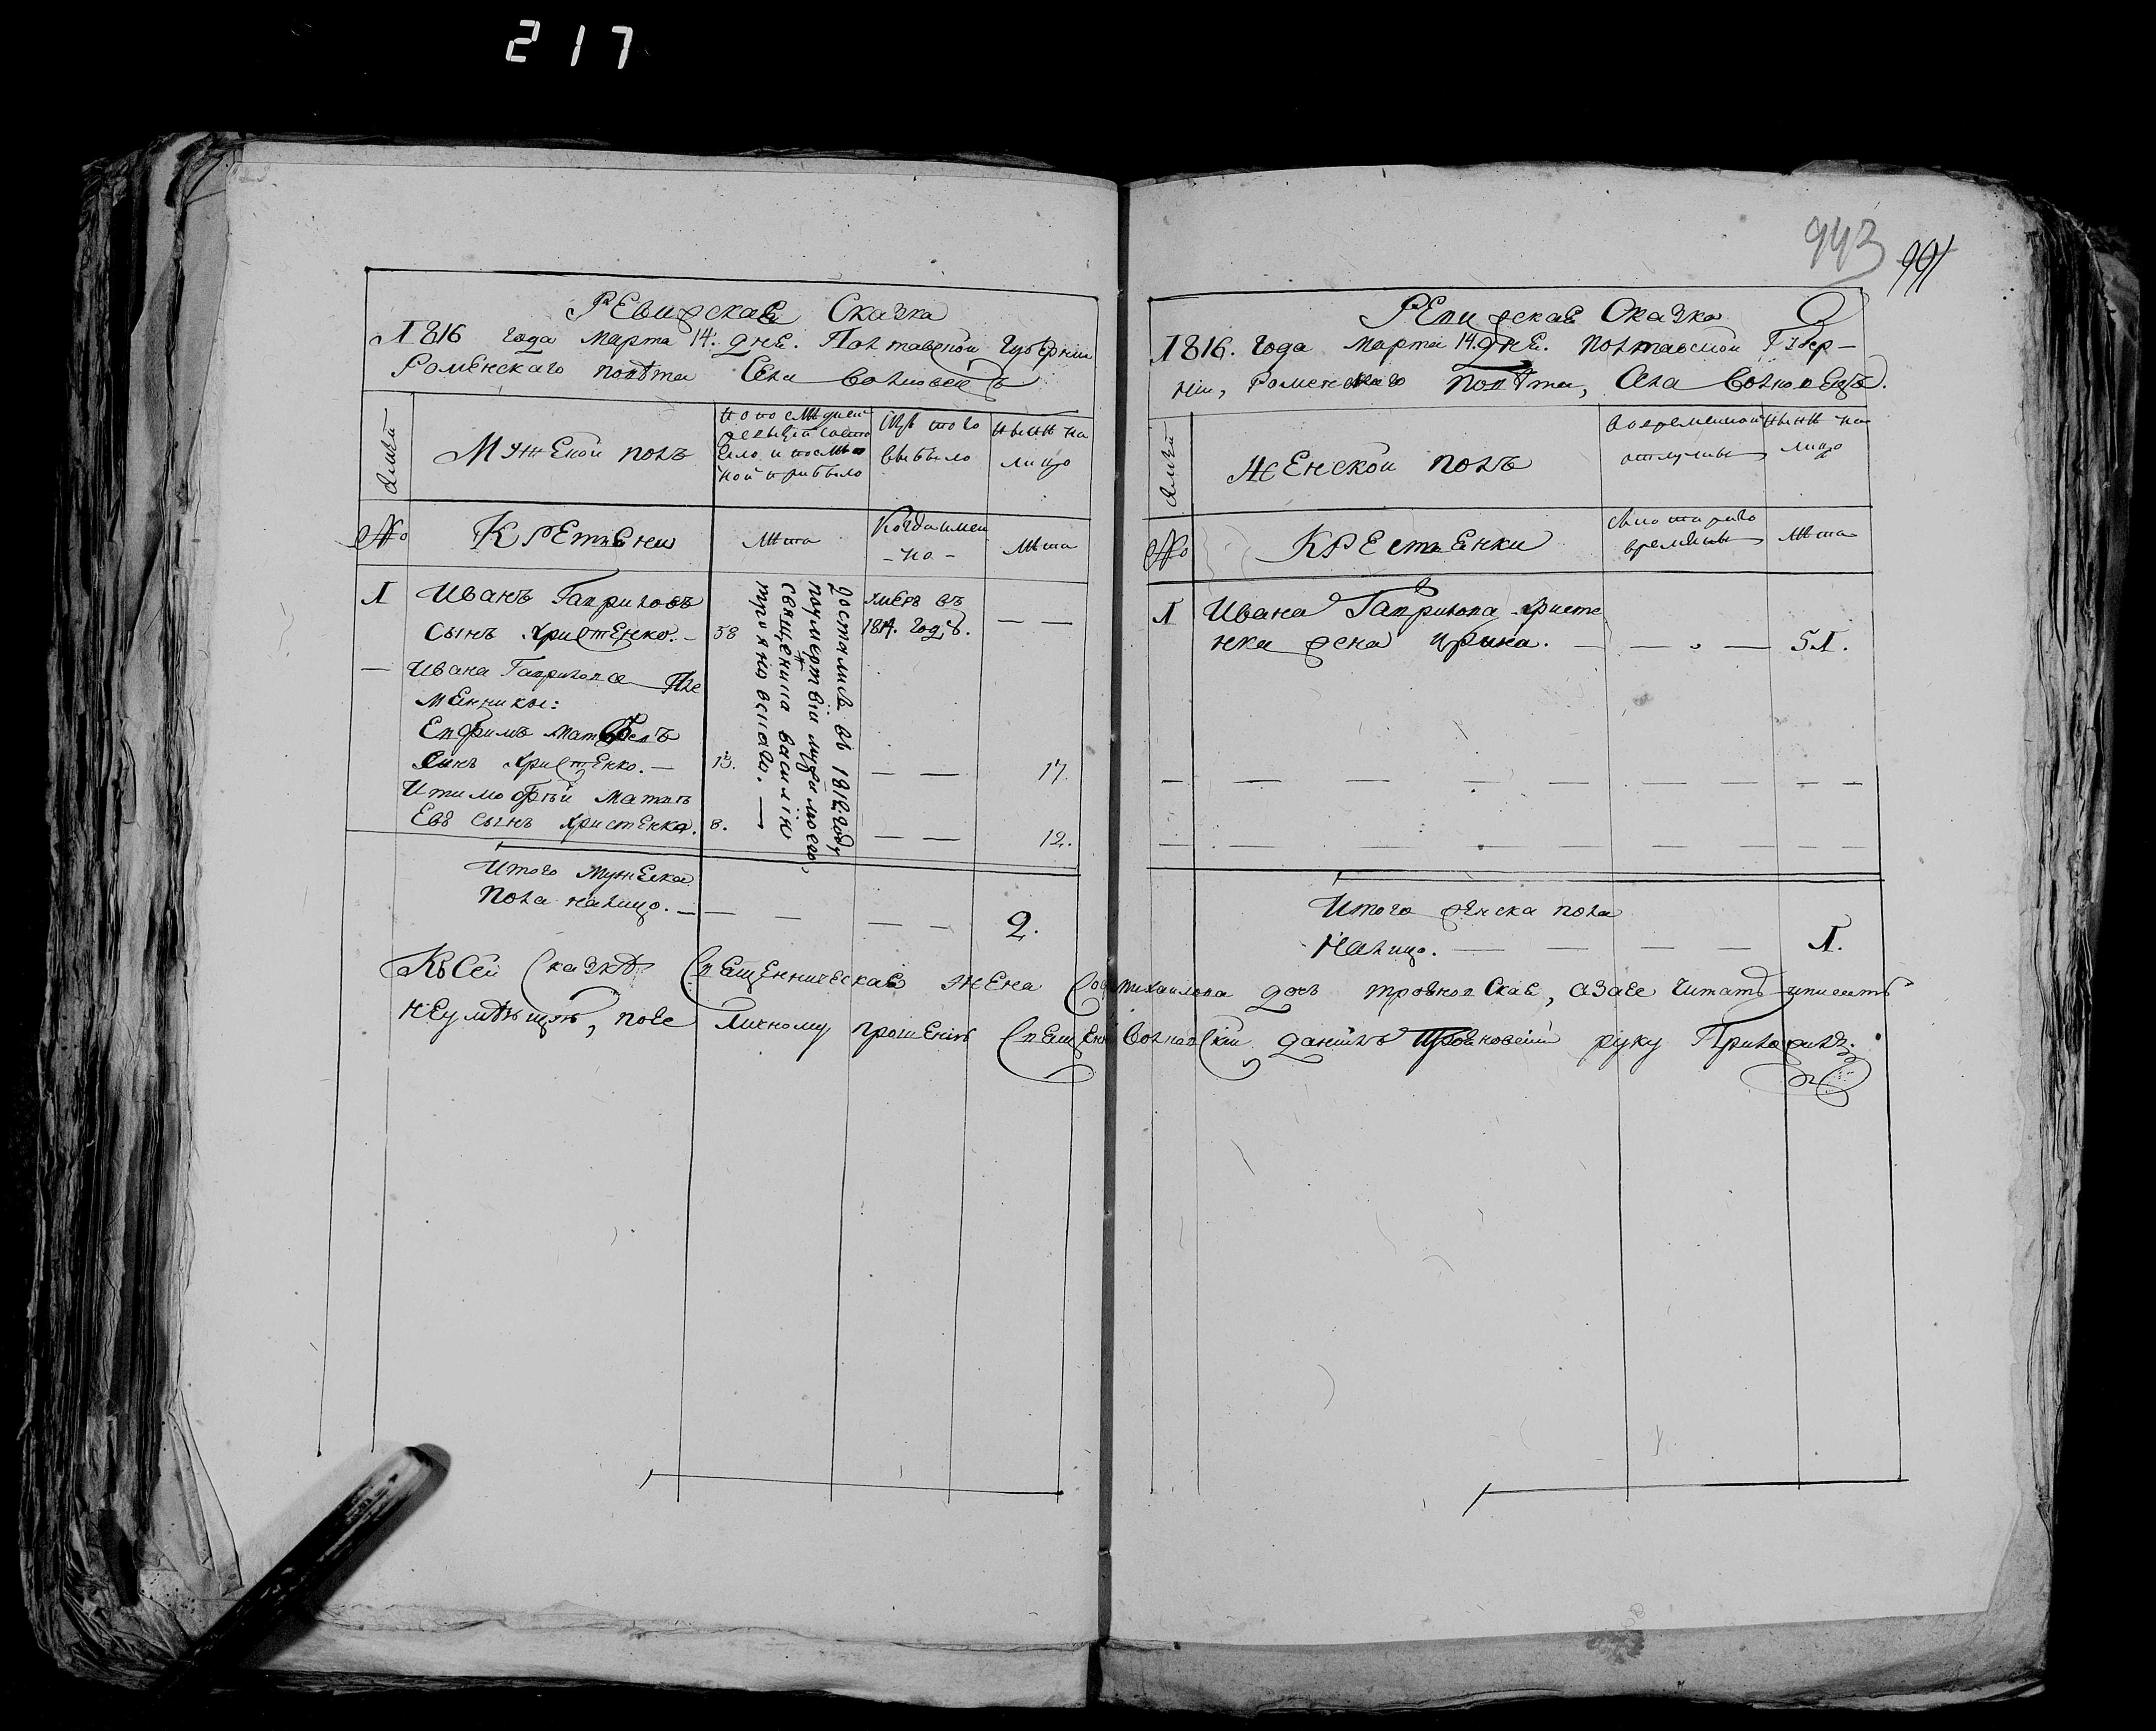 217
943 991
Ревижская Сказка
1816 года марта 14. дня. Полтавской губернии
Роменского повѣта Села Волковецъ
Семьи
Мужеской полъ
По последней
ревизіи состо
яло и послѣ
ной прибыло
Изъ того
выбыло
Нынѣ на
лицо
№
Крестяни
Лѣта
Когда имен
-но-
Лѣта
1 Иванъ Гавриловъ
сынъ Христенко. 58
умеръ въ
1814. годѣ. — —
— Ивана Гаврилова Пле
менники:
Ефримъ Матвѣевъ
синъ Христенко. — 13. — — 17.
И тимофѣй Матвѣ
евъ сынъ Христенко. 8. — — 12.
достались въ 1812 году
по умертвіи мужа моего,
священика василія
трояновскаго. —
Итого мужеска
пола налицо. — — — — — 2.
Ревижская Сказка
1816. года марта 14. дня. Полтавской Губер-
ніи, Роменскаго повѣта, Села Волковецъ.
Семьи
Женской полъ
Во временной
отлучкѣ
Нынѣ на
лицо
№
Крестянки
Съ котораго
времени
Лѣта
1 Ивана Гаврилова Христе
нка жена Ирина. — — — 51.
Итого женска пола
Налицо. — — — — 1.
Къ Сей Сказкѣ Священническая жена Михаилова дочь трояновская, а за ее Читать и писать
неумѣнщую, по ее личному прошенію Священикъ Волковскій даніилъ Трояновскій руку Приложилъ.